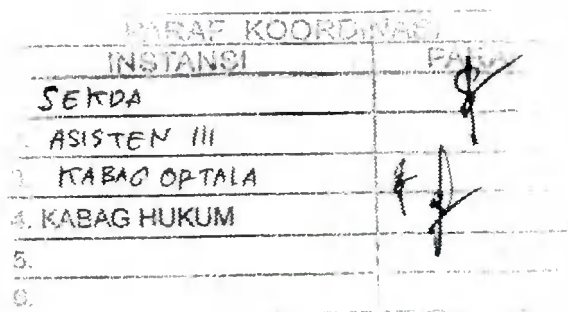 PARAF KOORDINASI
INSTANSI PARAF
SEKDA
ASISTEN III
3. KABAG OPTALA
4. KABAG HUKUM
5.
6.